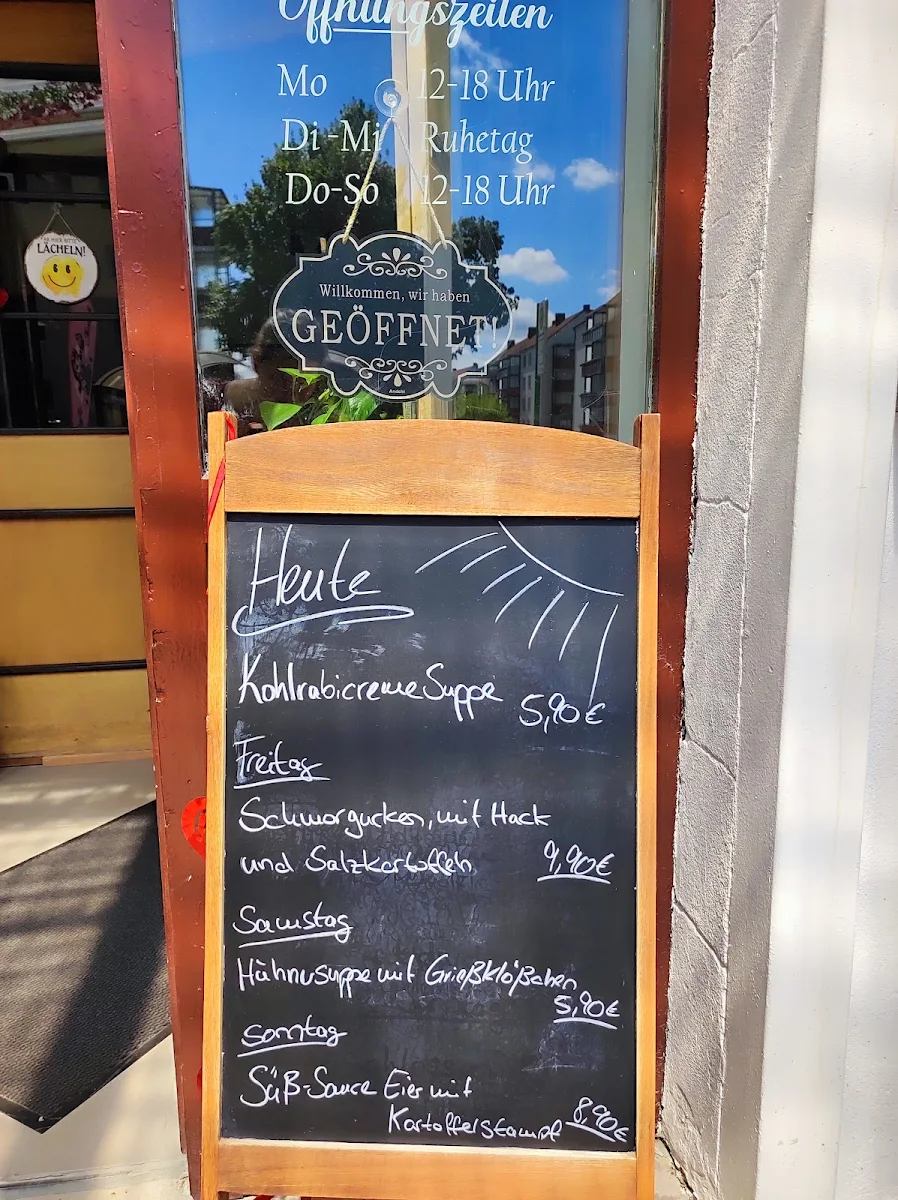 Öffnungszeiten
Mo 12-18 Uhr
Di-Mi Ruhetag
Do-So 12-18 Uhr
LÄCHELN!
Willkommen, wir haben
GEÖFFNET!
Heute
Kohlrabicreme Suppe
5,90 €
Freitag
Schmorgurken, mit Hack
und Salzkartoffeln 9,90 €
Samstag
Hühnersuppe mit Grießklößchen
5,90 €
Sonntag
Süß-Sauce Eier mit
Kartoffelstampf 8,90 €